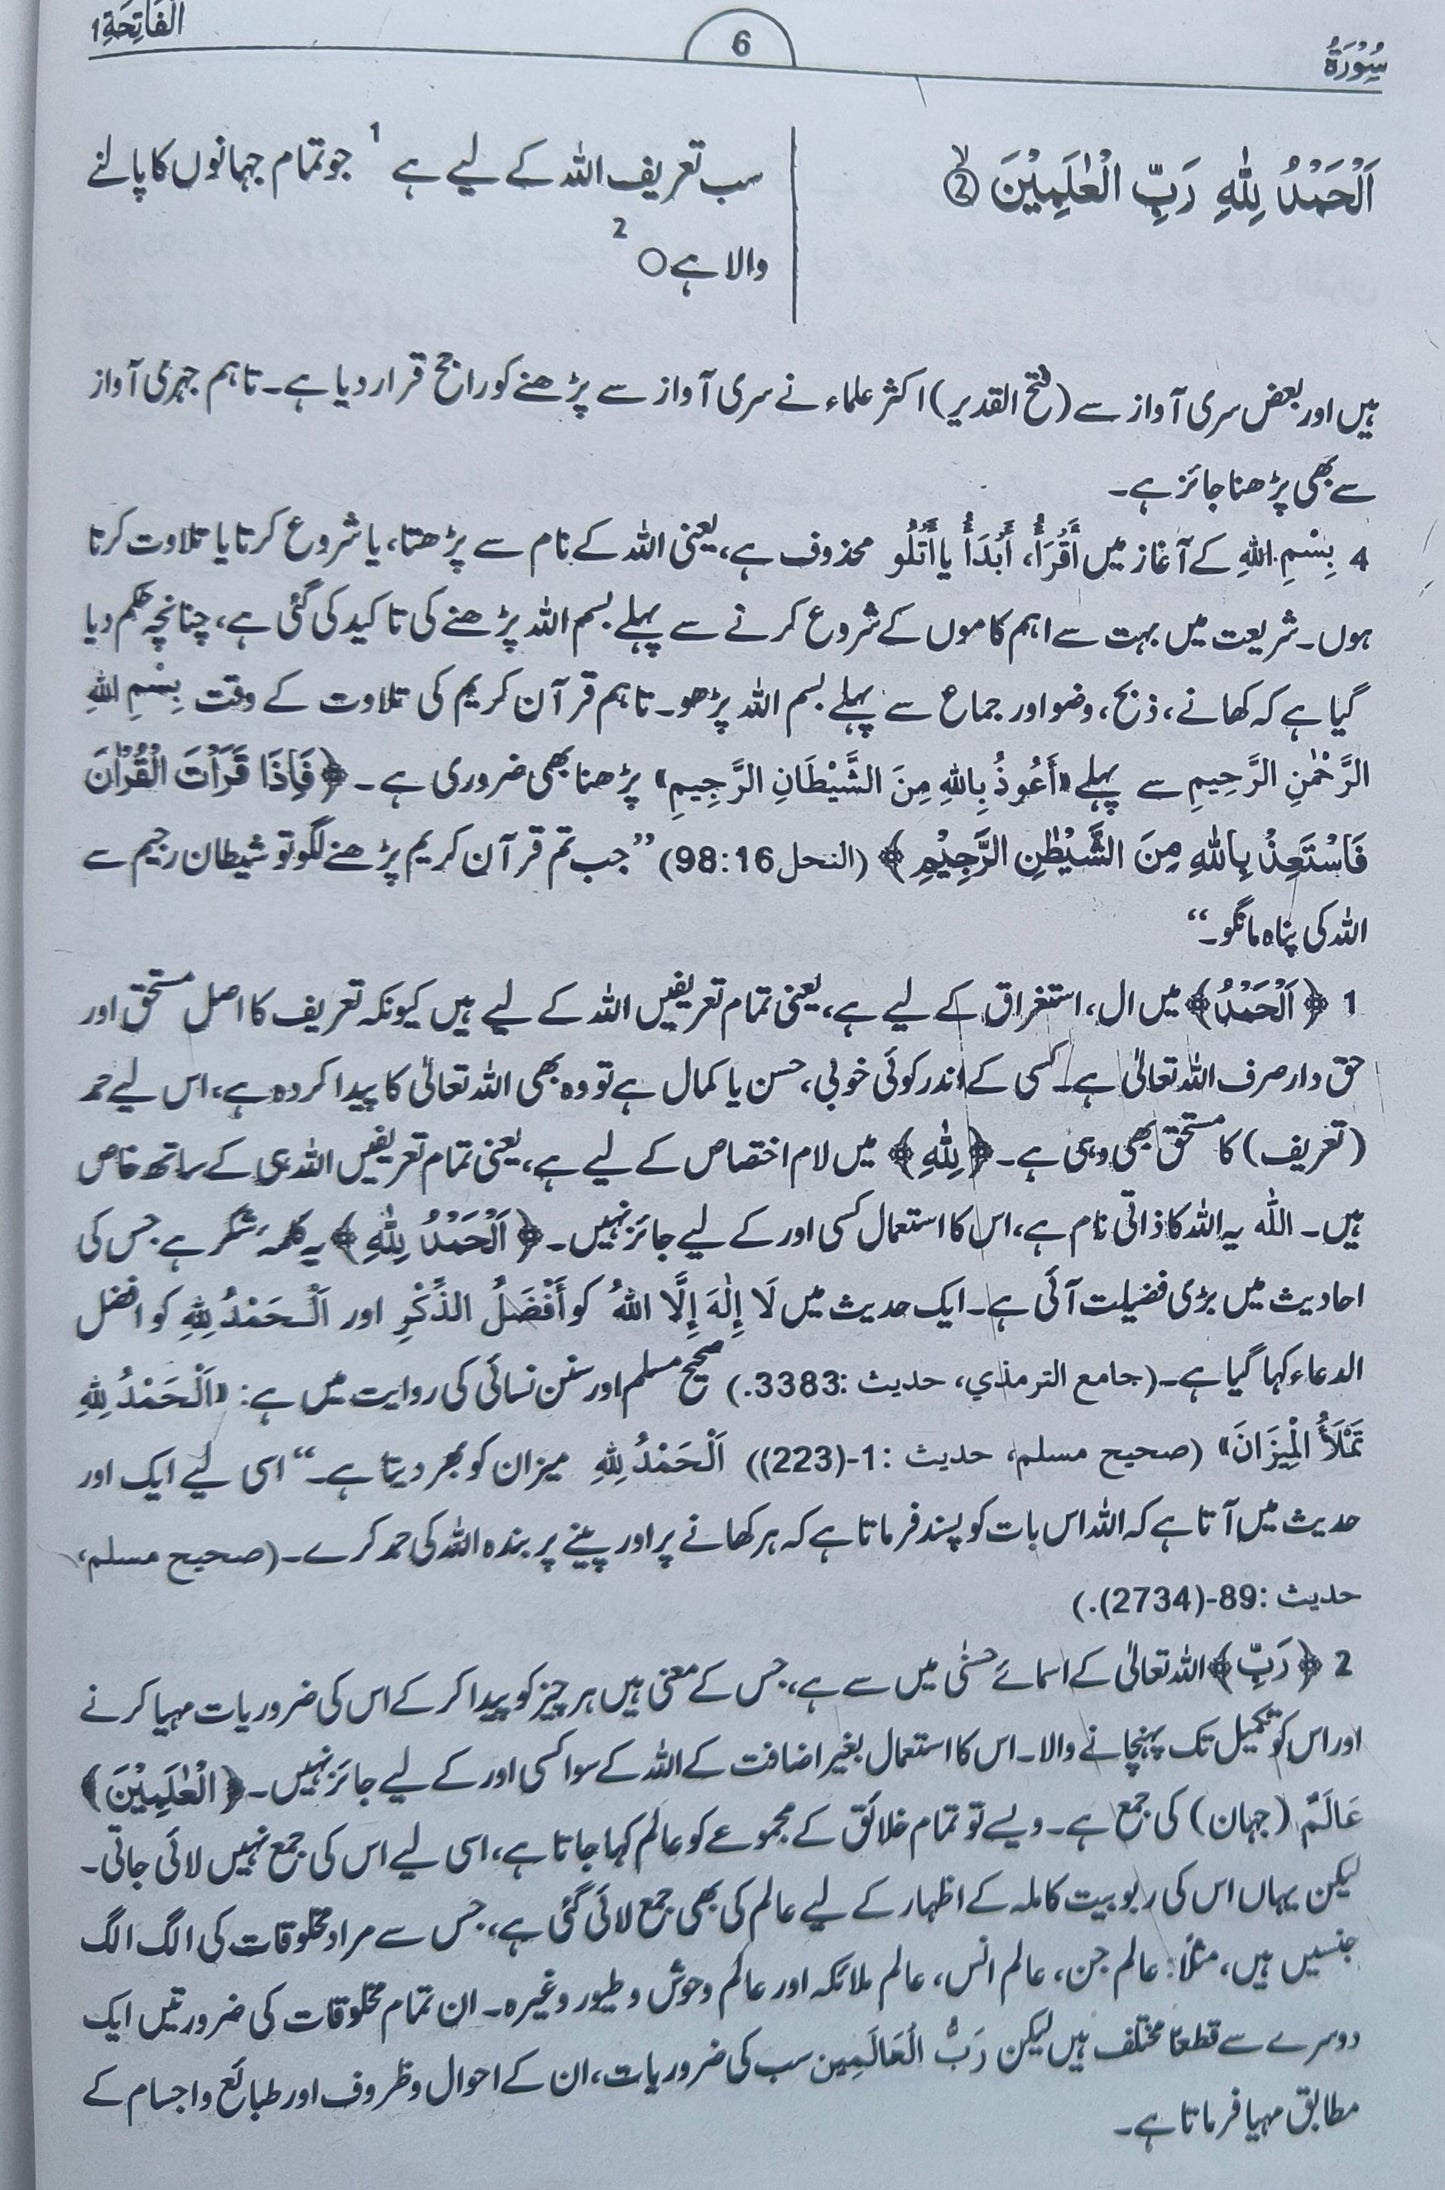 سُوْرَةُ
6
اَلْفَاتِحَةِ 1
اَلْحَمْدُ لِلّٰهِ رَبِّ الْعٰلَمِيْنَ ②ۙ
سب تعریف اللہ کے لیے ہے 1 جو تمام جہانوں کا پالنے
والا ہے ○ 2
ہیں اور بعض سری آواز سے (فتح القدیر) اکثر علماء نے سری آواز سے پڑھنے کو راجح قرار دیا ہے۔ تاہم جہری آواز
سے بھی پڑھنا جائز ہے۔
4 بِسْمِ اللهِ کے آغاز میں أَقْرَأُ، أَبْدَأُ یا أَتْلُو محذوف ہے، یعنی اللہ کے نام سے پڑھتا، یا شروع کرتا یا تلاوت کرتا
ہوں۔ شریعت میں بہت سے اہم کاموں کے شروع کرنے سے پہلے بسم اللہ پڑھنے کی تاکید کی گئی ہے، چنانچہ حکم دیا
گیا ہے کہ کھانے، ذبح، وضو اور جماع سے پہلے بسم اللہ پڑھو۔ تاہم قرآن کریم کی تلاوت کے وقت بِسْمِ اللهِ
الرَّحْمٰنِ الرَّحِيمِ سے پہلے «أَعُوذُ بِاللهِ مِنَ الشَّيْطَانِ الرَّجِيمِ» پڑھنا بھی ضروری ہے۔ ﴿فَاِذَا قَرَاْتَ الْقُرْاٰنَ
فَاسْتَعِذْ بِاللّٰهِ مِنَ الشَّيْطٰنِ الرَّجِيْمِ﴾ (النحل 98:16) ”جب تم قرآن کریم پڑھنے لگو تو شیطان رجیم سے
اللہ کی پناہ مانگو۔“
1 ﴿اَلْحَمْدُ﴾ میں ال، استغراق کے لیے ہے، یعنی تمام تعریفیں اللہ کے لیے ہیں کیونکہ تعریف کا اصل مستحق اور
حق دار صرف اللہ تعالیٰ ہے۔ کسی کے اندر کوئی خوبی، حسن یا کمال ہے تو وہ بھی اللہ تعالیٰ کا پیدا کردہ ہے، اس لیے حمد
(تعریف) کا مستحق بھی وہی ہے۔ ﴿لِلّٰهِ﴾ میں لام اختصاص کے لیے ہے، یعنی تمام تعریفیں اللہ ہی کے ساتھ خاص
ہیں۔ اللہ یہ اللہ کا ذاتی نام ہے، اس کا استعمال کسی اور کے لیے جائز نہیں۔ ﴿اَلْحَمْدُ لِلّٰهِ﴾ یہ کلمۂ شکر ہے جس کی
احادیث میں بڑی فضیلت آئی ہے۔ ایک حدیث میں لَا إِلٰهَ إِلَّا اللهُ کو أَفْضَلُ الذِّكْرِ اور اَلْحَمْدُ لِلّٰهِ کو افضل
الدعاء کہا گیا ہے۔ (جامع الترمذي، حدیث :3383.) صحیح مسلم اور سنن نسائی کی روایت میں ہے: «اَلْحَمْدُ لِلّٰهِ
تَمْلَأُ الْمِيزَانَ» (صحيح مسلم، حدیث :1-(223)) اَلْحَمْدُ لِلّٰهِ میزان کو بھر دیتا ہے۔“ اسی لیے ایک اور
حدیث میں آتا ہے کہ اللہ اس بات کو پسند فرماتا ہے کہ ہر کھانے پر اور پینے پر بندہ اللہ کی حمد کرے۔ (صحيح مسلم،
حدیث :89-(2734).)
2 ﴿رَبِّ﴾ اللہ تعالیٰ کے اسمائے حسنٰی میں سے ہے، جس کے معنی ہیں ہر چیز کو پیدا کر کے اس کی ضروریات مہیا کرنے
اور اس کو تکمیل تک پہنچانے والا۔ اس کا استعمال بغیر اضافت کے اللہ کے سوا کسی اور کے لیے جائز نہیں۔ ﴿الْعٰلَمِيْنَ﴾
عَالَمٌ (جہان) کی جمع ہے۔ ویسے تو تمام خلائق کے مجموعے کو عالم کہا جاتا ہے، اسی لیے اس کی جمع نہیں لائی جاتی۔
لیکن یہاں اس کی ربوبیت کاملہ کے اظہار کے لیے عالم کی بھی جمع لائی گئی ہے، جس سے مراد مخلوقات کی الگ الگ
جنسیں ہیں، مثلاً: عالم جن، عالم انس، عالم ملائکہ اور عالم وحوش و طیور وغیرہ۔ ان تمام مخلوقات کی ضرورتیں ایک
دوسرے سے قطعاً مختلف ہیں لیکن رَبُّ الْعَالَمِين سب کی ضروریات، ان کے احوال و ظروف اور طبائع و اجسام کے
مطابق مہیا فرماتا ہے۔